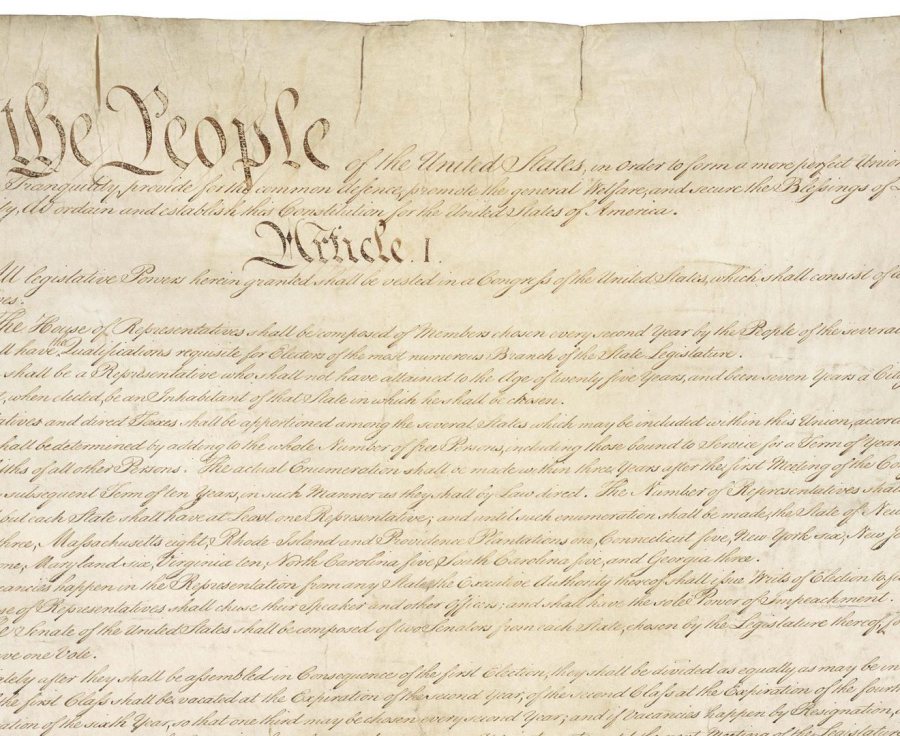 the People
of the United States, in Order to form a more perfect Union
Tranquility, provide for the common defence, promote the general Welfare, and secure the Blessings of
do ordain and establish this Constitution for the United States of America.
Article. I.
All legislative Powers herein granted shall be vested in a Congress of the United States, which shall consist of
The House of Representatives shall be composed of Members chosen every second Year by the People of the several
have the Qualifications requisite for Electors of the most numerous Branch of the State Legislature.
shall be a Representative who shall not have attained to the Age of twenty five Years, and been seven Years a
when elected, be an Inhabitant of that State in which he shall be chosen.
and direct Taxes shall be apportioned among the several States which may be included within this Union,
shall be determined by adding to the whole Number of free Persons, including those bound to Service for a Term of Years
of all other Persons. The actual Enumeration shall be made within three Years after the first Meeting of the
subsequent Term of ten Years, in such Manner as they shall by Law direct. The Number of Representatives shall
but each State shall have at Least one Representative; and until such enumeration shall be made, the State of New
three, Massachusetts eight, Rhode Island and Providence Plantations one, Connecticut five, New York six, New
Maryland six, Virginia ten, North Carolina five, South Carolina five, and Georgia three.
happen in the Representation from any State, the Executive Authority thereof shall issue Writs of Election to
of Representatives shall chuse their Speaker and other Officers; and shall have the sole Power of Impeachment.
Senate of the United States shall be composed of two Senators from each State, chosen by the Legislature thereof, for
one Vote.
after they shall be assembled in Consequence of the first Election, they shall be divided as equally as may be
the first Class shall be vacated at the Expiration of the second Year, of the second Class at the Expiration of the fourth
of the sixth Year, so that one third may be chosen every second Year; and if Vacancies happen by Resignation,